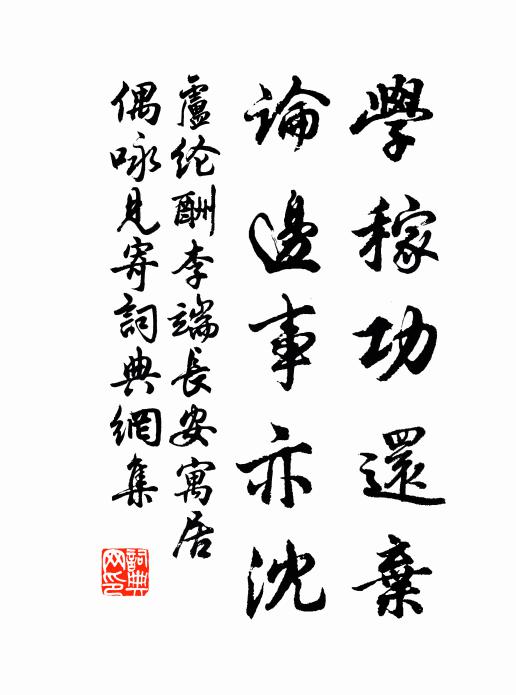 學稼功還棄
論邊事亦沈
盧纶酬李端長安寓居
偶咏見寄詞典網集
詞典网印